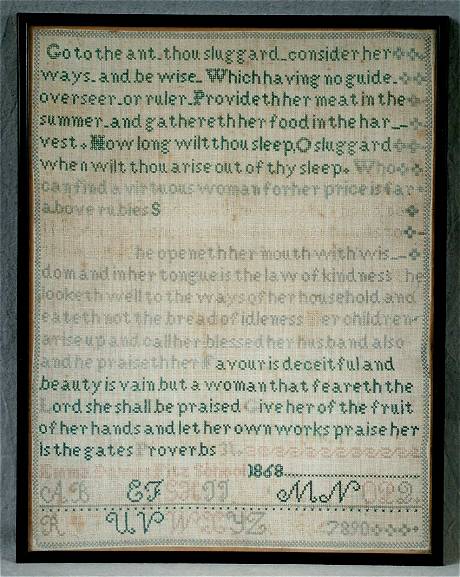 Go to the ant thou sluggard consider her
ways and be wise Which having no guide
overseer or ruler Provideth her meat in the
summer and gathereth her food in the har
vest. How long wilt thou sleep, O sluggard
when wilt thou arise out of thy sleep. Who
can find a virtuous woman for her price is far
above rubies S
he openeth her mouth with wis
dom and in her tongue is the law of kindness he
looketh well to the ways of her household and
eateth not the bread of idleness er children
arise up and call her blessed her husband also
and he praiseth her Favour is deceitful and
beauty is vain but a woman that feareth the
Lord she shall be praised Give her of the fruit
of her hands and let her own works praise her
is the gates Proverbs
Emma School 1868
A B E F M N
R U V W Y Z 7890